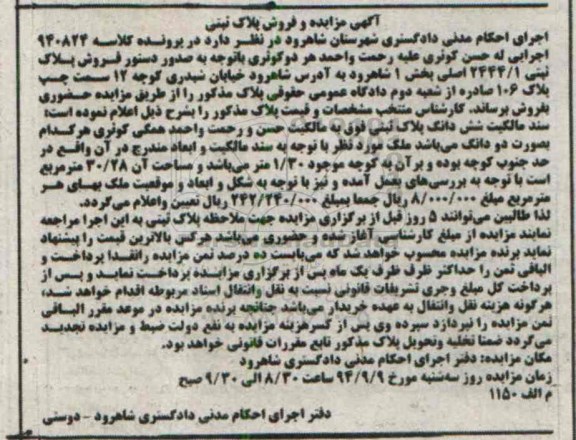 آگهی مزایده و فروش پلاک ثبتی
اجرای احکام مدنی دادگستری شهرستان شاهرود در نظر دارد در پرونده کلاسه ۹۴۰۸۲۴
اجرایی له حسن کوثری علیه رحمت واحمد هر دوکوثری باتوجه به صدور دستور فروش پلاک
ثبتی ۲۴۴۴/۱ اصلی بخش ۱ شاهرود به آدرس شاهرود خیابان شیدری کوچه ۱۲ سمت چپ
پلاک ۱۰۶ صادره از شعبه دوم دادگاه عمومی حقوقی پلاک مذکور را از طریق مزایده حضوری
بفروش برساند. کارشناس منتخب مشخصات و قیمت پلاک مذکور را بشرح ذیل اعلام نموده است:
سند مالکیت شش دانگ پلاک ثبتی فوق به مالکیت حسن و رحمت واحمد همگی کوثری هرکدام
بصورت دو دانگ می‌باشد ملک مورد نظر با توجه به سند مالکیت و ابعاد مندرج در آن واقع در
حد جنوب کوچه بوده و برآن به کوچه موجود ۱/۳۰ متر می‌باشد و مساحت آن ۳۰/۲۸ مترمربع
است با توجه به بررسی‌های بعمل آمده و نیز با توجه به شکل و ابعاد و موقعیت ملک بهای هر
مترمربع مبلغ ۸/۰۰۰/۰۰۰ ریال جمعا بمبلغ ۲۴۲/۲۴۰/۰۰۰ ریال تعیین واعلام می‌گردد.
لذا طالبین می‌توانند ۵ روز قبل از برگزاری مزایده جهت ملاحظه پلاک ثبتی به این اجرا مراجعه
نمایند مزایده از مبلغ کارشناسی آغاز شده و حضوری می‌باشد هرکس بالاترین قیمت را پیشنهاد
نماید برنده مزایده محسوب خواهد شد که می‌بایست ده درصد ثمن مزایده رانقدا پرداخت و
الباقی ثمن را حداکثر ظرف ظرف یک ماه پس از برگزاری مزایده پرداخت نماید و پس از
پرداخت کل مبلغ وجری تشریفات قانونی نسبت به نقل وانتقال اسناد مربوطه اقدام خواهد شد،
هرگونه هزینه نقل وانتقال به عهده خریدار می‌باشد چنانچه برنده مزایده در موعد مقرر الباقی
ثمن مزایده را نپردازد سپرده وی پس از کسرهزینه مزایده به نفع دولت ضبط و مزایده تجدید
می‌گردد ضمنا تخلیه وتحویل پلاک مذکور تابع مقررات قانونی خواهد بود.
مکان مزایده: دفتر اجرای احکام مدنی دادگستری شاهرود
زمان مزایده روز سه‌شنبه مورخ ۹۴/۹/۹ ساعت ۸/۳۰ الی ۹/۳۰ صبح
م الف ۱۱۵۰
دفتر اجرای احکام مدنی دادگستری شاهرود - دوستی